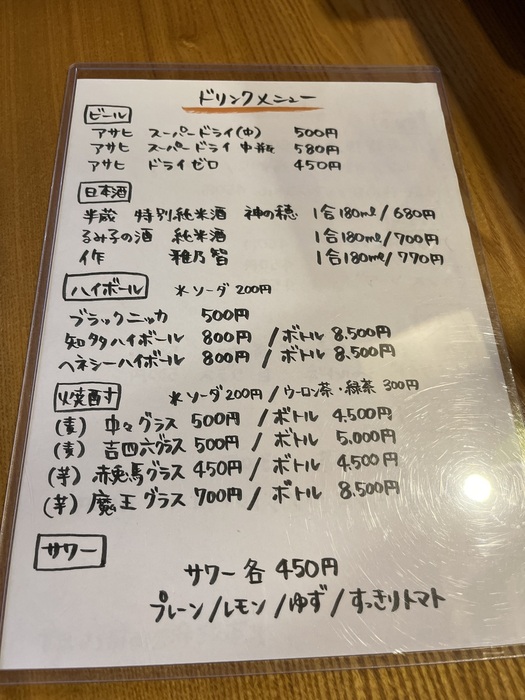 ドリンクメニュー
ビール
アサヒ スーパードライ(中) 500円
アサヒ スーパードライ 中瓶 580円
アサヒ ドライゼロ 450円
日本酒
半蔵 特別純米酒 神の穂 1合180ml/680円
るみ子の酒 純米酒 1合180ml/700円
作 雅乃智 1合180ml/770円
ハイボール *ソーダ 200円
ブラックニッカ 500円
知多ハイボール 800円 /ボトル 8.500円
ヘネシーハイボール 800円 /ボトル 8.500円
焼酎 *ソーダ200円/ウーロン茶・緑茶 300円
(麦) 中々グラス 500円 /ボトル 4.500円
(麦) 吉四六グラス 500円 /ボトル 5.000円
(芋) 赤兎馬グラス 450円/ボトル 4.500円
(芋) 魔王グラス 700円/ボトル 8.500円
サワー
サワー各 450円
プレーン/レモン/ゆず/すっきりトマト